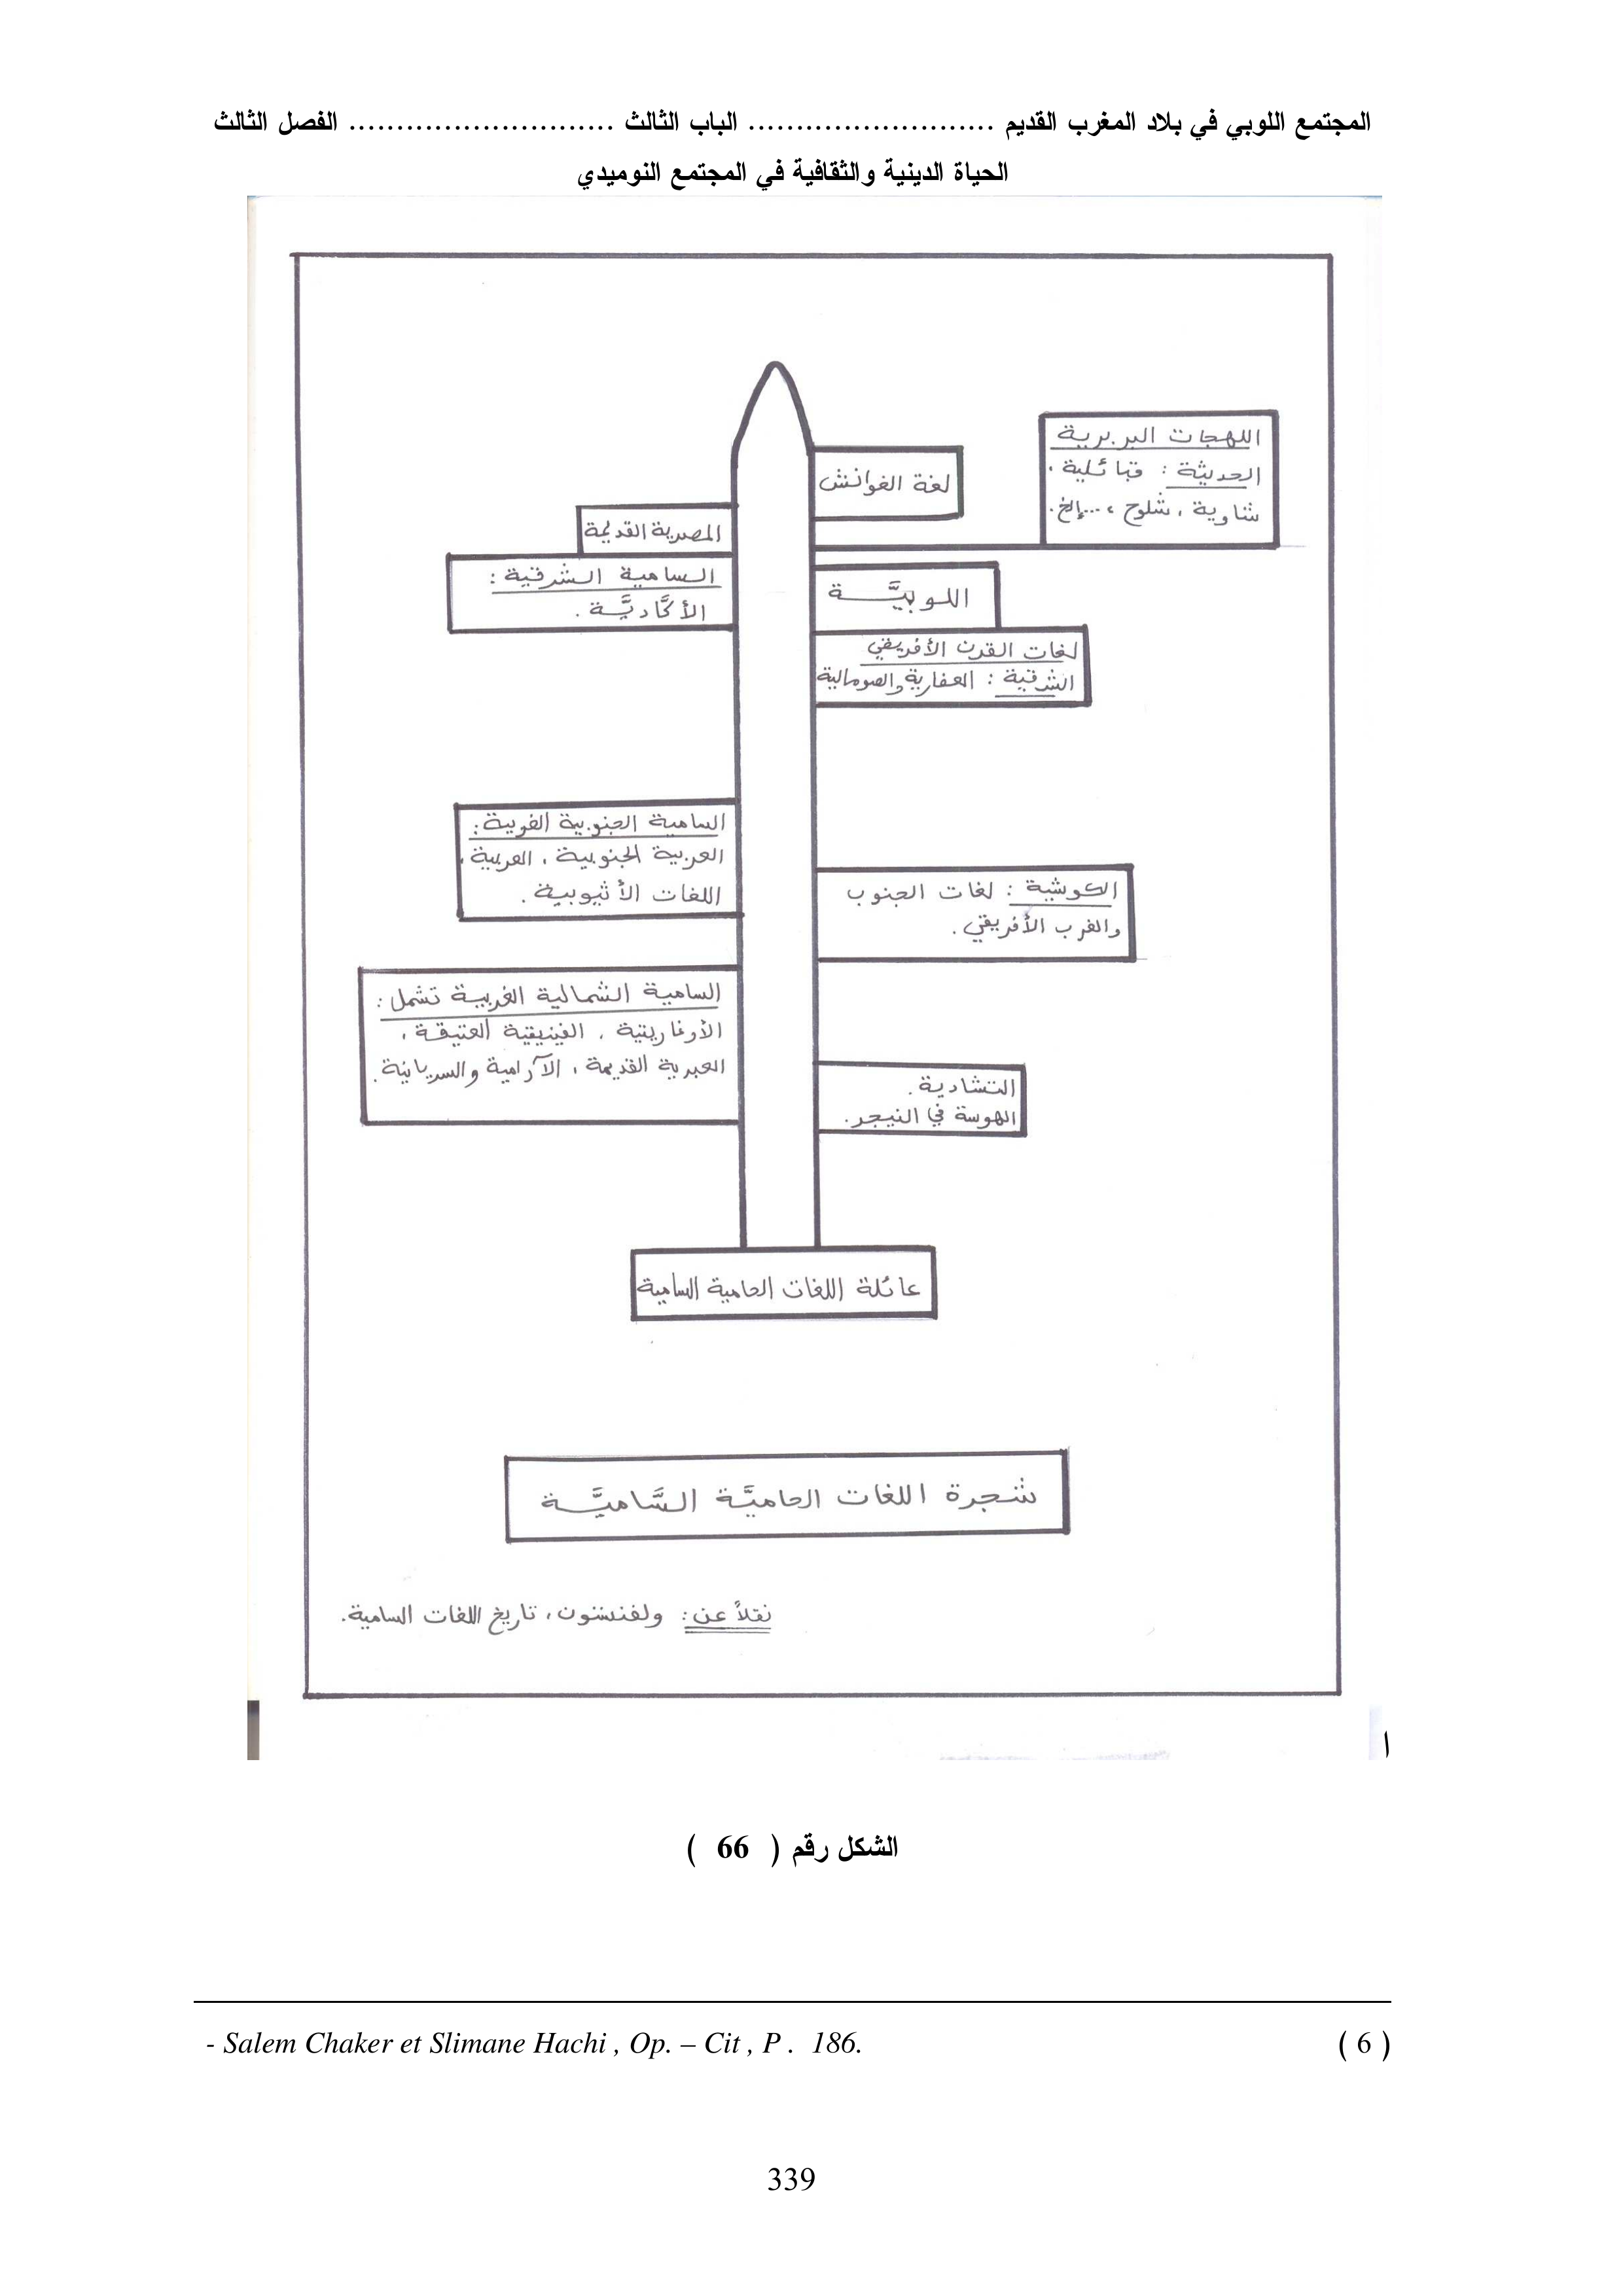 المجتمع اللوبي في بلاد المغرب القديم .......................... الباب الثالث ............................ الفصل الثالث
الحياة الدينية والثقافية في المجتمع النوميدي
اللهجات البربرية
الحديثة : قبائلية ،
شاوية ، شلوح ، ...إلخ.
لغة الغوانش
المصرية القديمة
السامية الشرقية :
الأكَّاديَّة .
اللوبيَّة
لغات القرن الأفريقي
الشرقية : العفارية والصومالية
السامية الجنوبية الغربية :
العربية الجنوبية ، العربية ،
اللغات الأثيوبية .
الكوشية : لغات الجنوب
والغرب الأفريقي .
السامية الشمالية الغربية تشمل :
الأوغاريتية ، الفينيقية العتيقة ،
العبرية القديمة ، الآرامية والسريانية .
التشادية .
الهوسة في النيجر .
عائلة اللغات الحامية السامية
شجرة اللغات الحاميَّة السَّاميَّة
نقلاً عن : ولفنسون ، تاريخ اللغات السامية .
ا
الشكل رقم ( 66 )
( 6 ) - Salem Chaker et Slimane Hachi , Op. – Cit , P . 186.
339